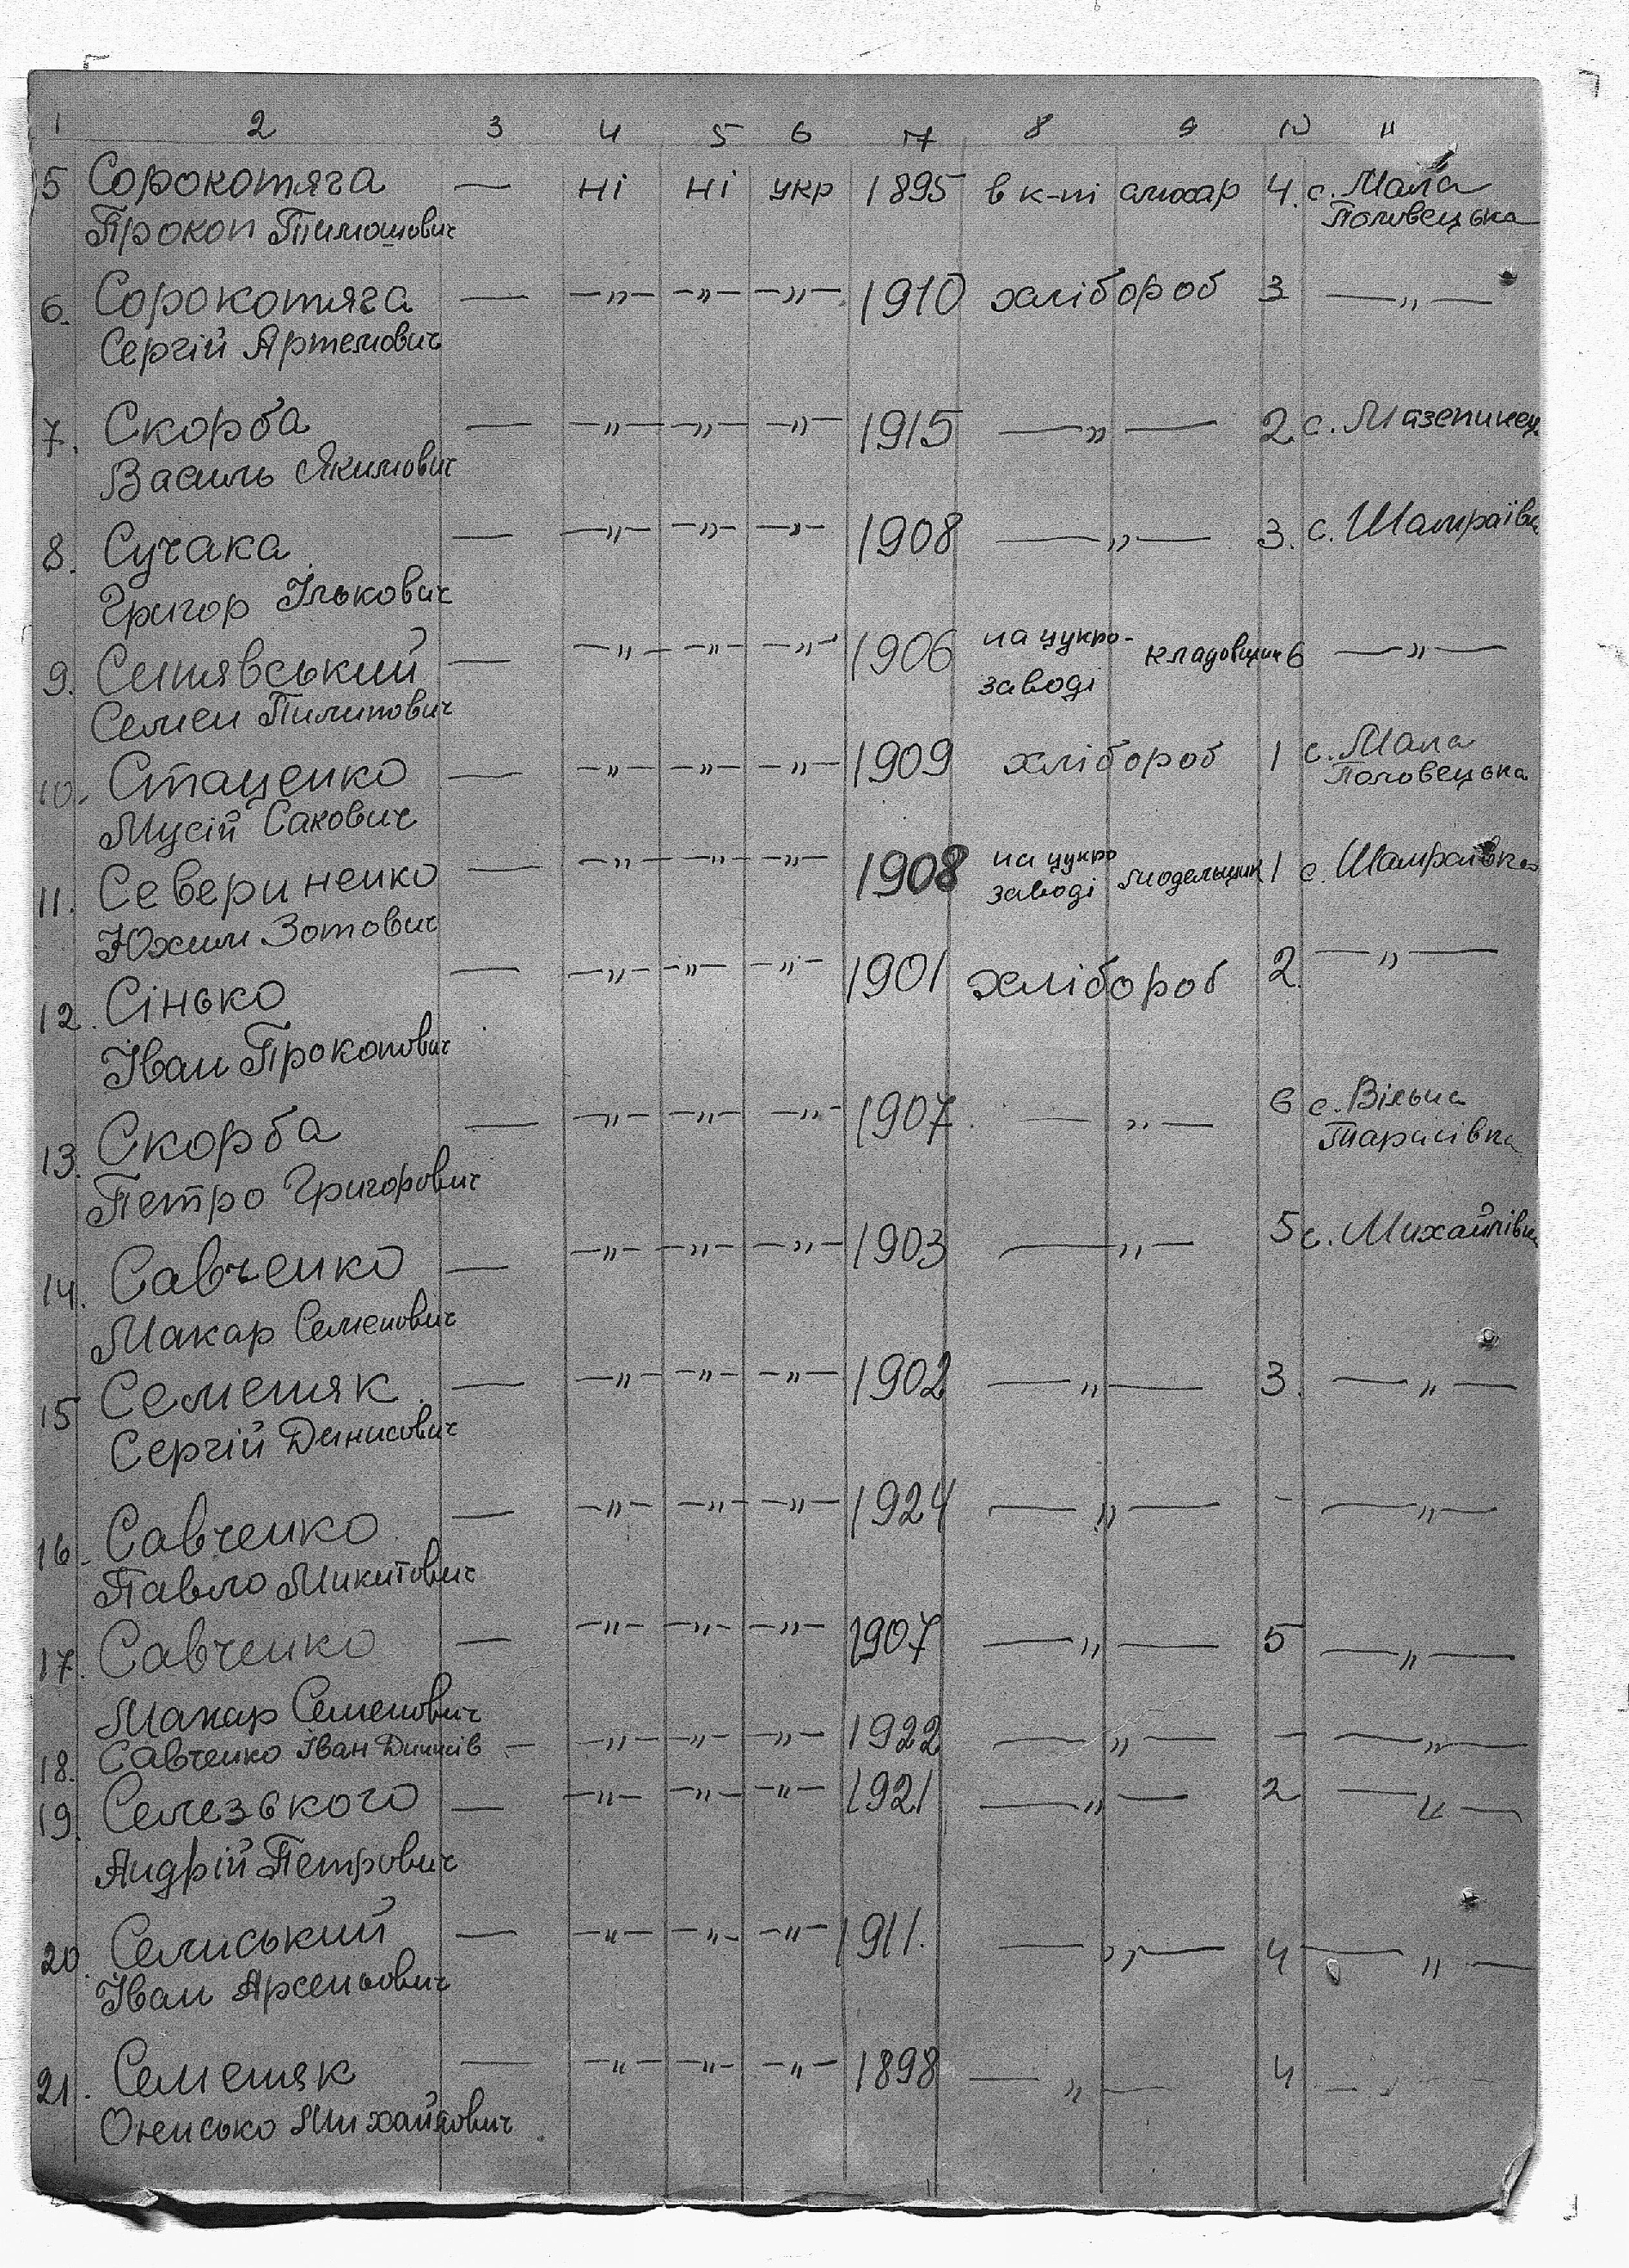 1 2 3 4 5 6 7 8 9 10 11
5 Сорокотяга — ні ні укр 1895 в к-ті 4. с. Мала
Прокоп Тимошович Половецька
6. Сорокотяга — —"— —"— —"— 1910 хлібороб 3 —"—
Сергій Артемович
7. Скорба — —"— —"— —"— 1915 —"— 2 с. Мазепинец
Василь Якимович
8. Сучака — —"— —"— —"— 1908 —"— 3. с. Шамраївка
Григор Ількович
9. Синявський — —"— —"— —"— 1906 на цукро- кладовщик 6 —"—
Семен Пилипович заводі
10. Стаценко — —"— —"— —"— 1909 хлібороб 1 с. Мала
Мусій Сакович Половецька
11. Севериненко — —"— —"— —"— 1908 на цукро модельщик 1 с. Шамраївка
Юхим Зотович заводі
12. Сінько — —"— —"— —"— 1901 хлібороб 2. —"—
Іван Прокопович
13. Скорба — —"— —"— —"— 1907 —"— 6 с. Вільна
Петро Григорович Тарасівка
14. Савченко — —"— —"— —"— 1903 —"— 5 с. Михайлівка
Макар Семенович
15 Семеняк — —"— —"— —"— 1902 —"— 3. —"—
Сергій Динисович
16. Савченко — —"— —"— —"— 1924 —"— - —"—
Павло Микитович
17. Савченко — —"— —"— —"— 1907 —"— 5 —"—
Макар Семенович
18. Савченко Іван Динисів — —"— —"— —"— 1922 —"— - —"—
19. Селезького — —"— —"— —"— 1921 —"— 2 —"—
Андрій Петрович
20. Семиський — —"— —"— —"— 1911. —"— 4 —"—
Іван Арсеньович
21. Семеняк — —"— —"— —"— 1898 —"— 4 —"—
Онисько Михайлович